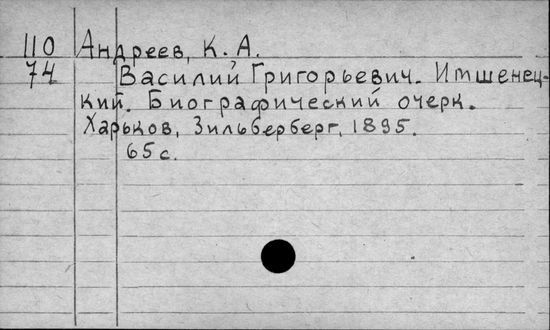 110 Андреев, К. А.
74 Василий Григорьевич. Итшенец-
кий. Биографический очерк.
Харьков, Зильберберг, 1895.
65 с.